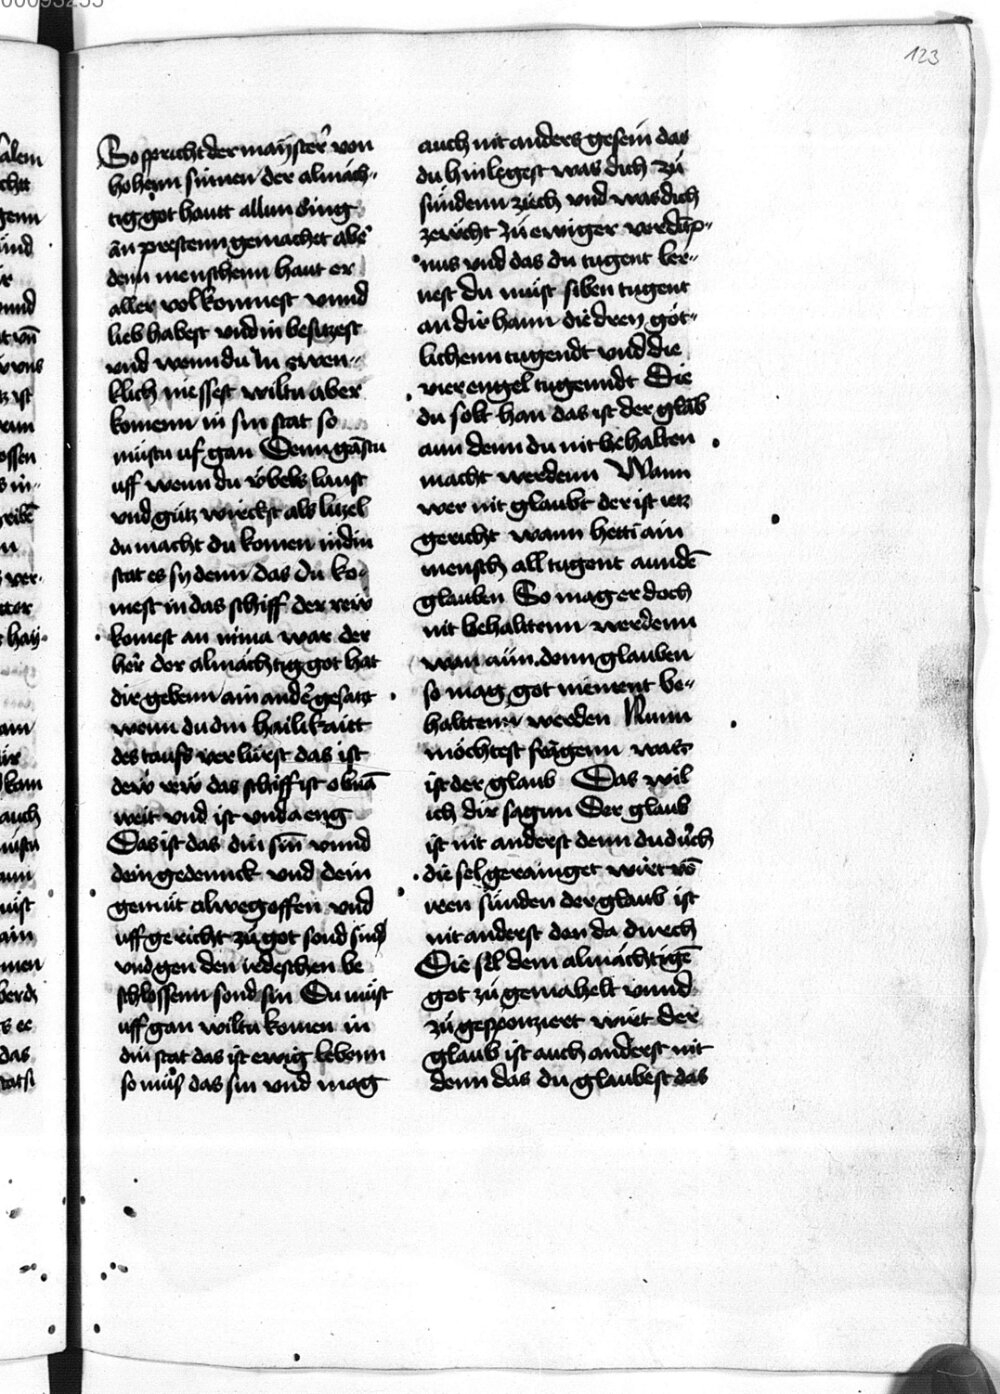 123
So spricht der maÿster von
hohenn sinnen der almäch-
tig got hautt allun ding
än prestenn gemachet aber
dem menschenn haut er
aller volkomnest vnnd
lieb habest vnd in besitzest
vnd wenn du in ewen-
klich niessest wiltu aber
komenn in sin stat so
müstu uf gan Denn gāstu
uff wenn du v̈bels laust
vnd gütz wirckst als lützel
du macht du komen in din
stat es sy denn das du ko-
mest in das schiff der rew
komest an nima war der
her der almächtig got hat
die gebenn ain ander gesatzt
wenn du din hailikaitt
des taufs verlürest das ist
dew rew das schiff ist obnā
weit vnd ist vnda eng
Das ist das din sin̄ vnnd
dein gedennck vnd dein
gemüt alweg offen vnd
uff gericht zü got sond sind
vnd gen den irdeschen be
schlossenn sond sin Du müst
uff gan wiltu komen in
din stat das ist ewig lebenn
so müs das sin vnd mag
auch nit anders gesein das
du hinlegest was dich zü
sündenn ziech vnd was dich
zewcht zü ewiger verdāp-
nus vnd das du tugent ler-
nest du müst siben tugent
an dir hann die dreÿ göt-
lichenn tugendt vnd die
vier engel tugenndt Die
du solt han das ist der glāb
ann denn du nit behalten
macht werdenn Wann
wer nit glaubt der ist ietz
gericht wann hetti ain
mensch all tugent aun dē
glauben So mag er doch
nit behalttenn werdenn
wan aün denn glauben
so mag got niement be-
halttenn werden Nunn
möchtest frägenn was
ist der glaub Das wil
ich dir sagun Der glaub
ist nit anderst denn du dürch
die sel gerainget wirt vō
iren sünden der glaub ist
nit anderst den da durch
Die sel dem almächtigē
got zü gemahelt vnnd
zü gesponziert wirt der
glaub ist auch anderst nit
denn das du glaubest das